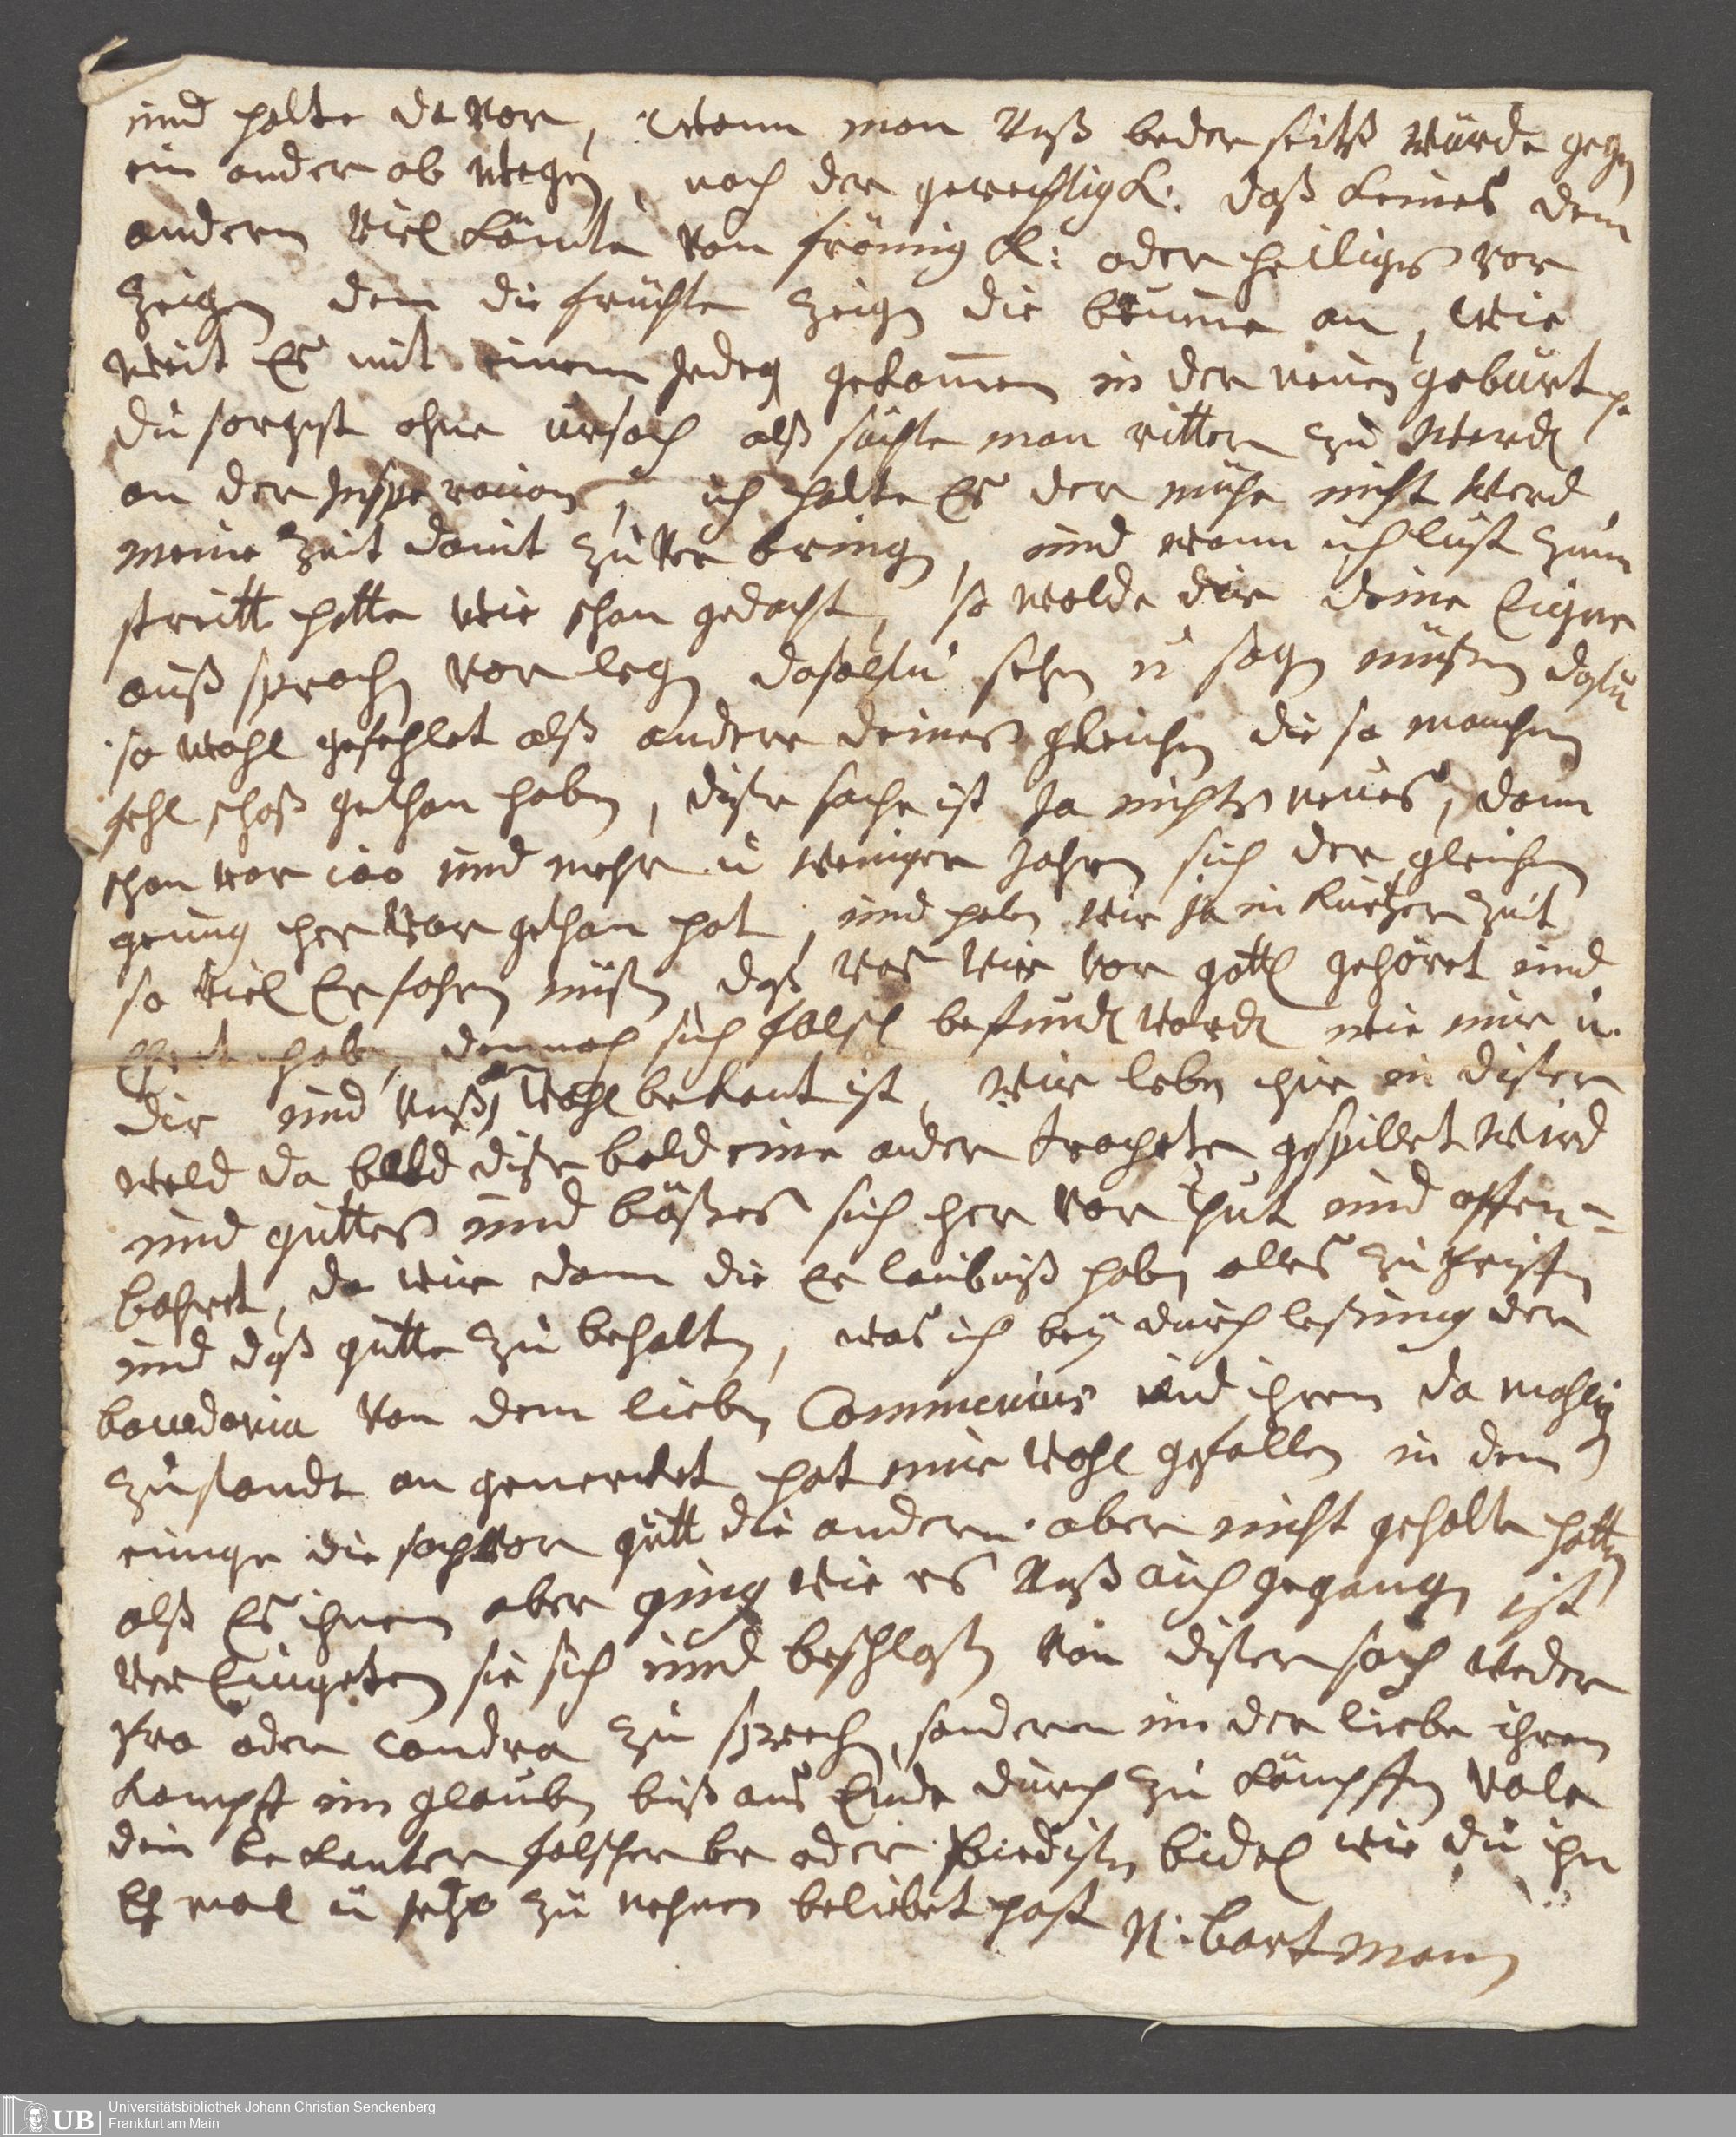 und halte da vor, wann man Unß beder seitß würde gegen
ein ander ab wegen, nach der gerechtigk: daß keines dem
andern viel könte von frömig k: oder heiliges vor
zeigen den die früchte zeigen die beume an, wie
weit Es mit einem Jeden gekom̄en in der neuen geburt
du sorgest ohne ursach alß suchte man ritter zu werden
an der Insperation, ich halte Es der mühe nicht werd,
meine Zeit damit zu ver bringen, und wann ich lust zum
streitt hette wie schon gedacht, so wolde dir deine Eigne
auß sprachen vor legen, dasolstu sehen u sagen müßen dastu
so wohl gefehlet alß andere deines gleichen die so manchen
fehl schoß gethan haben, dißer sache ist Ja nichts neues, dann
schon vor 100 und mehr u weniger Jahren sich der gleichen
genug her vor gethan hat, und haben wir Ja in kurtzer Zeit
so viel Er fahren müßen, daß was wir vor gottl gehöret und
haben, dennoch sich falsch befunden worden wie mir u.
dir und Unß wohl bekant ist, wir leben hir in dißer
weld da bald diße bald eine ander trachete gespillet wird
und guttes und bößes sich her vor thut und offen=
bahret, da wir dann die Er laubniß haben alles zu priffen
und daß gutte zu behalten, was ich bey durch leßung der
von dem lieben Commenius und ihrem da mahligen
zustande an gemercket hat mir wohl gefallen in dem
einige die sach vor gutt die andern aber nicht gehalten hatten
alß Es ihnen aber ging wie es Unß auch gegangen ist
ver Einigeten sie sich und beschloßen von dißer sach weder
pro oder condra zu sprechen, sonderen in der liebe ihren
kampff im glauben biß ans Ende durch zu kämpffen Vale
dein be kanter falscher br oder wie du ihn
Eh mal u jetzo zu nehnen beliebet hast N: Bartmann
Universitätsbibliothek Johann Christian Senckenberg
Frankfurt am Main
UB